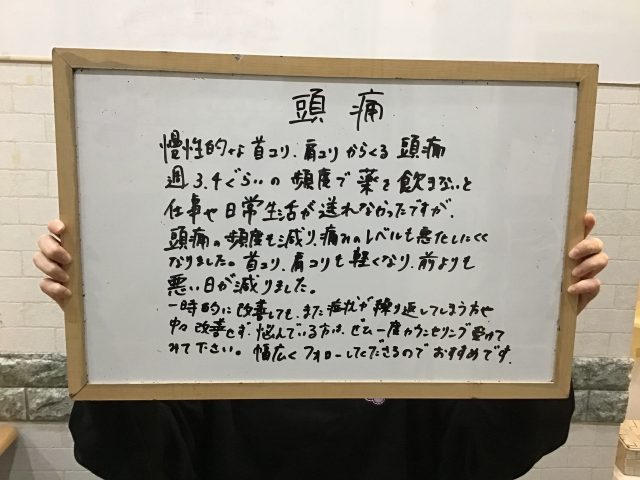 頭痛
慢性的な首コリ、肩コリからくる頭痛
週3、4ぐらいの頻度で薬を飲まないと
仕事や日常生活が送れなかったですが、
頭痛の頻度も減り、痛みのレベルも悪化しにくく
なりました。首コリ、肩コリも軽くなり、前よりも
悪い日が減りました。
一時的に改善しても、また症状が繰り返してしまう方や
中々改善せず、悩んでいる方は、ぜひ一度カウンセリング受けて
みて下さい。幅広くフォローしてくださるのでおすすめです。